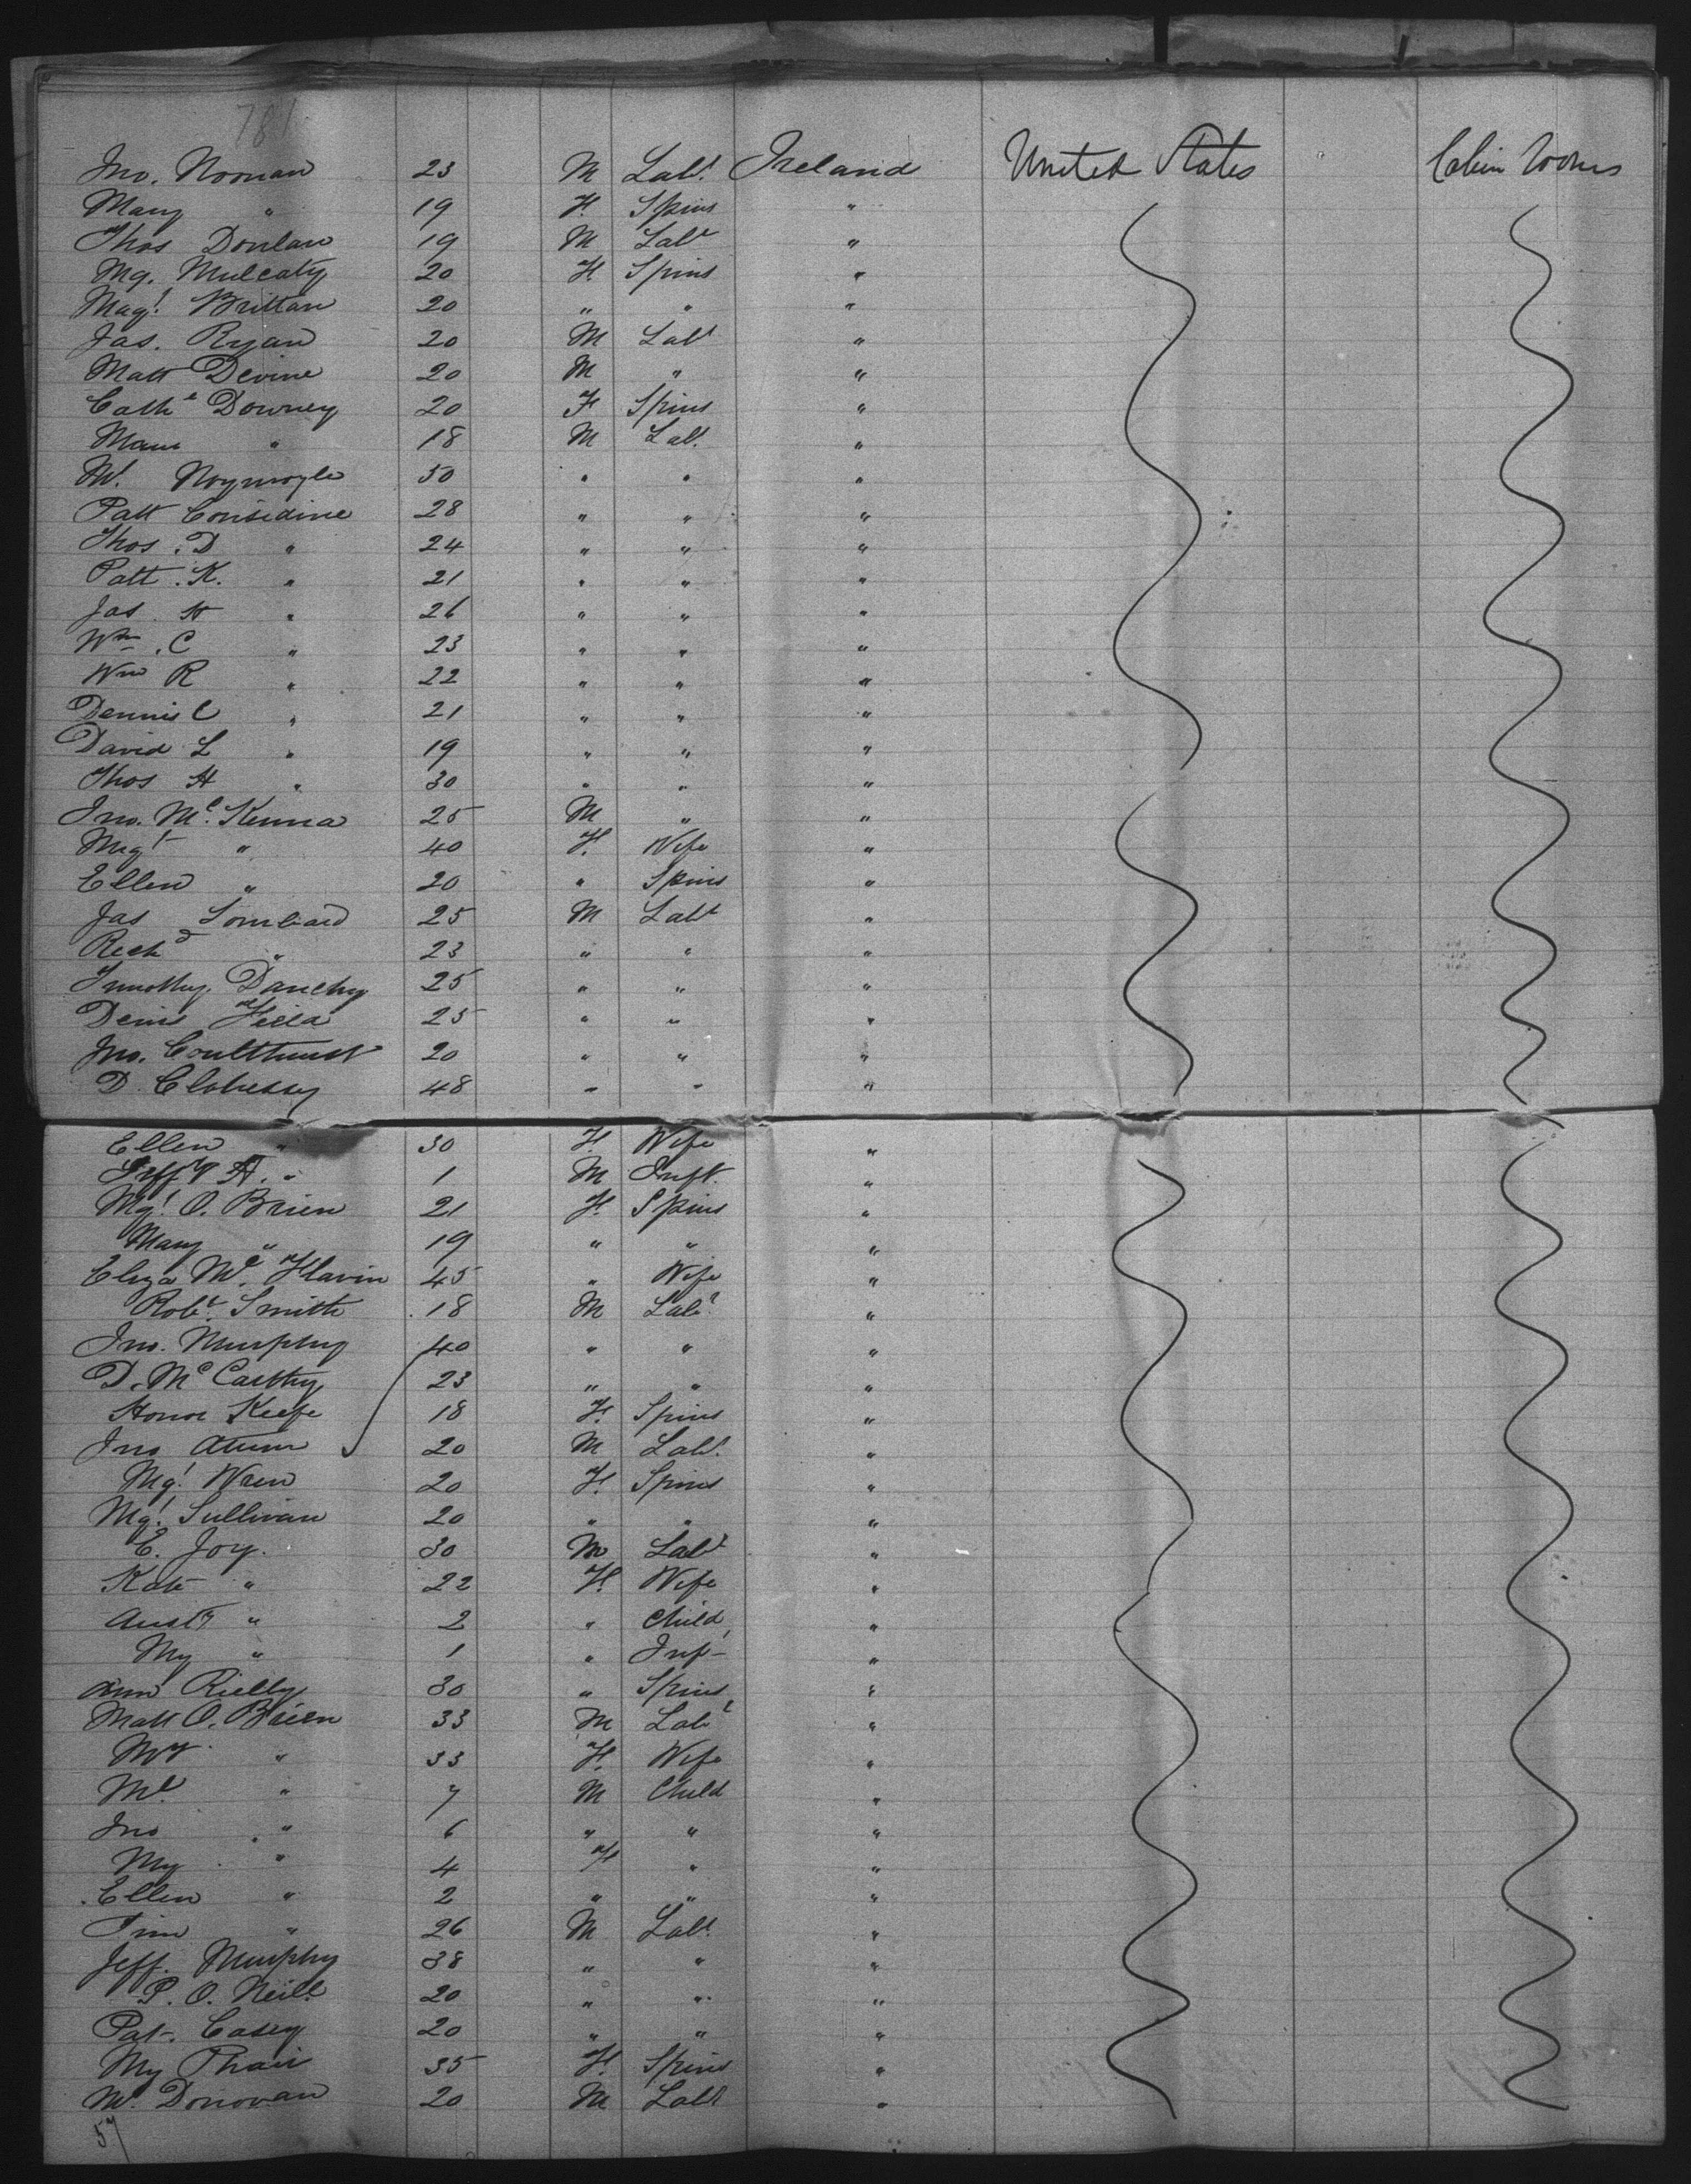 781
Jno. Noonan 23 M Labr. Ireland United States
Mary " 19 F. Spins "
Thos Donlan 19 M Labr "
Mg. Mulcaty 20 F. Spins "
Magt. Brittan 20 " " "
Jas. Ryan 20 M Labr "
Matt Devine 20 M " "
Cathe Downey 20 F Spins "
Maur " 18 M Labr. "
Ml. 50 " " "
Patt Considine 28 " " "
Thos. D " 24 " " "
Patt. K. " 21 " " "
Jas. H " 26 " " "
Wm. C " 23 " " "
Wm R " 22 " " "
Dennis C " 21 " " "
David L " 19 " " "
Thos H " 30 " " "
Jno. Mc. Kenna 25 M " "
Mrgt " 40 F. Wife "
Ellen " 20 " Spins "
Jas Lombard 25 M Labr "
Richd " 23 " " "
Timothy. Danehy 25 " " "
Denis 25 " " "
Jno. Coulthurst 20 " " "
D. Clohessy 48 " " "
Ellen " 30 F. Wife "
Jeffy A. " 1 M Inft. "
Mgt. O. Brien 21 F. Spins "
Mary " 19 " " "
Eliza Mc. Flavin 45 " Wife "
Robt. Smith 18 M Labr. "
Jno. Murphy 40 " " "
D. Mc Carthy 23 " " "
Honor Keefe 18 F. Spins "
Jno 20 M Labr. "
Mgt. Wren 20 F. Spins "
Mgt. Sullivan 20 " " "
E. Joy. 30 M Labr "
Kate " 22 F. Wife "
2 " Child "
My " 1 " Inft "
Ann Rielly 30 " Spins "
Matt O. Brien 33 M Labr "
My " 33 F. Wife "
Ml. " 7 M Child "
Jno " 6 " " "
My " 4 F " "
Ellen " 2 " " "
Tim " 26 M Labr. "
Jeff. Murphy 38 " " "
P. O. Neill 20 " " "
Pat. Casey 20 " " "
My Phair 35 F. Spins "
Ml. Donovan 20 M Labr "
57